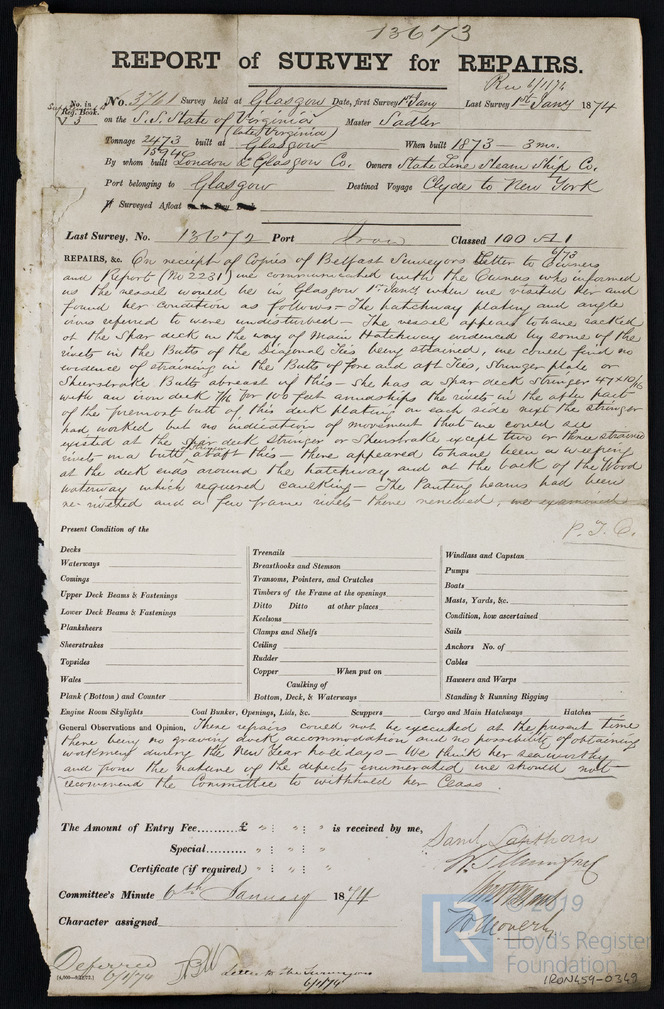 13673
REPORT of SURVEY for REPAIRS.
Rec 6/1/74
No. in Reg. Book.
V 3
No. 3761 Survey held at Glasgow Date, first Survey 1st Jany Last Survey 1st Jany 1874
on the S.S. State of Virginia Master Sadler
(late Virginia)
Tonnage 2473 built at Glasgow When built 1873 – 3 mo.
1594
By whom built London & Glasgow Co. Owners State Line Steam Ship Co.
Port belonging to Glasgow Destined Voyage Clyde to New York
If Surveyed Afloat
Last Survey, No. 13672 Port Iron Classed 100 A1
6/73
REPAIRS, &c. On receipt of Copies of Belfast Surveyors Letter to Owners
and Report (No 2231) we communicated with the Owners who informed
us the vessel would be in Glasgow 1st Jany when we visited her and
found her condition as follows – The hatchway plating and angle
irons referred to were undisturbed – The vessel appears to have racked
at the Spar deck in the way of Main Hatchway evidenced by some of the
rivets in the Butts of the Diagonal Ties being strained, we could find no
evidence of straining in the Butts of Fore and aft Ties, Stringer plate or
Sheerstrake Butts abreast of this – She has a Spar deck Stringer 47 x 10/16
with an iron deck 7/16 for 100 feet amidships the rivets in the after part
of the foremost butt of this deck plating on each side next the stringer
had worked but no indication of movement that we could see
existed at the Spar deck Stringer or Sheerstrake except two or three strained
rivets in a butt of Stringer abaft this – there appeared to have been a weeping
at the deck ends around the hatchway and at the back of the Wood
waterway which required caulking – The Panting beams had been
re-riveted and a few frame rivets there renewed, we examined
P.T.O.
Present Condition of the
Decks
Waterways
Comings
Upper Deck Beams & Fastenings
Lower Deck Beams & Fastenings
Planksheers
Sheerstrakes
Topsides
Wales
Plank (Bottom) and Counter
Treenails
Breasthooks and Stemson
Transoms, Pointers, and Crutches
Timbers of the Frame at the openings
Ditto Ditto at other places
Keelsons
Clamps and Shelfs
Ceiling
Rudder
Copper When put on
Caulking of
Bottom, Deck, & Waterways
Windlass and Capstan
Pumps
Boats
Masts, Yards, &c.
Condition, how ascertained
Sails
Anchors No. of
Cables
Hawsers and Warps
Standing & Running Rigging
Engine Room Skylights Coal Bunker, Openings, Lids, &c. Scuppers Cargo and Main Hatchways Hatches
General Observations and Opinion, These repairs could not be executed at the present time
there being no graving dock accommodation and no possibility of obtaining
workmen during the New Year holidays – We think her seaworthy
and from the nature of the defects enumerated we should not
recommend the Committee to withhold her Class
The Amount of Entry Fee.......... £ " : " : " is received by me,
Special.......... " : " : "
Certificate (if required) " : " : "
Saml Lapthorn
Committee's Minute 6th January 1874
Character assigned
Deferred
6/1/74
Letter to the Surveyors
6/1/74
© 2019
LR
Lloyd's Register
Foundation
IRON459-0349